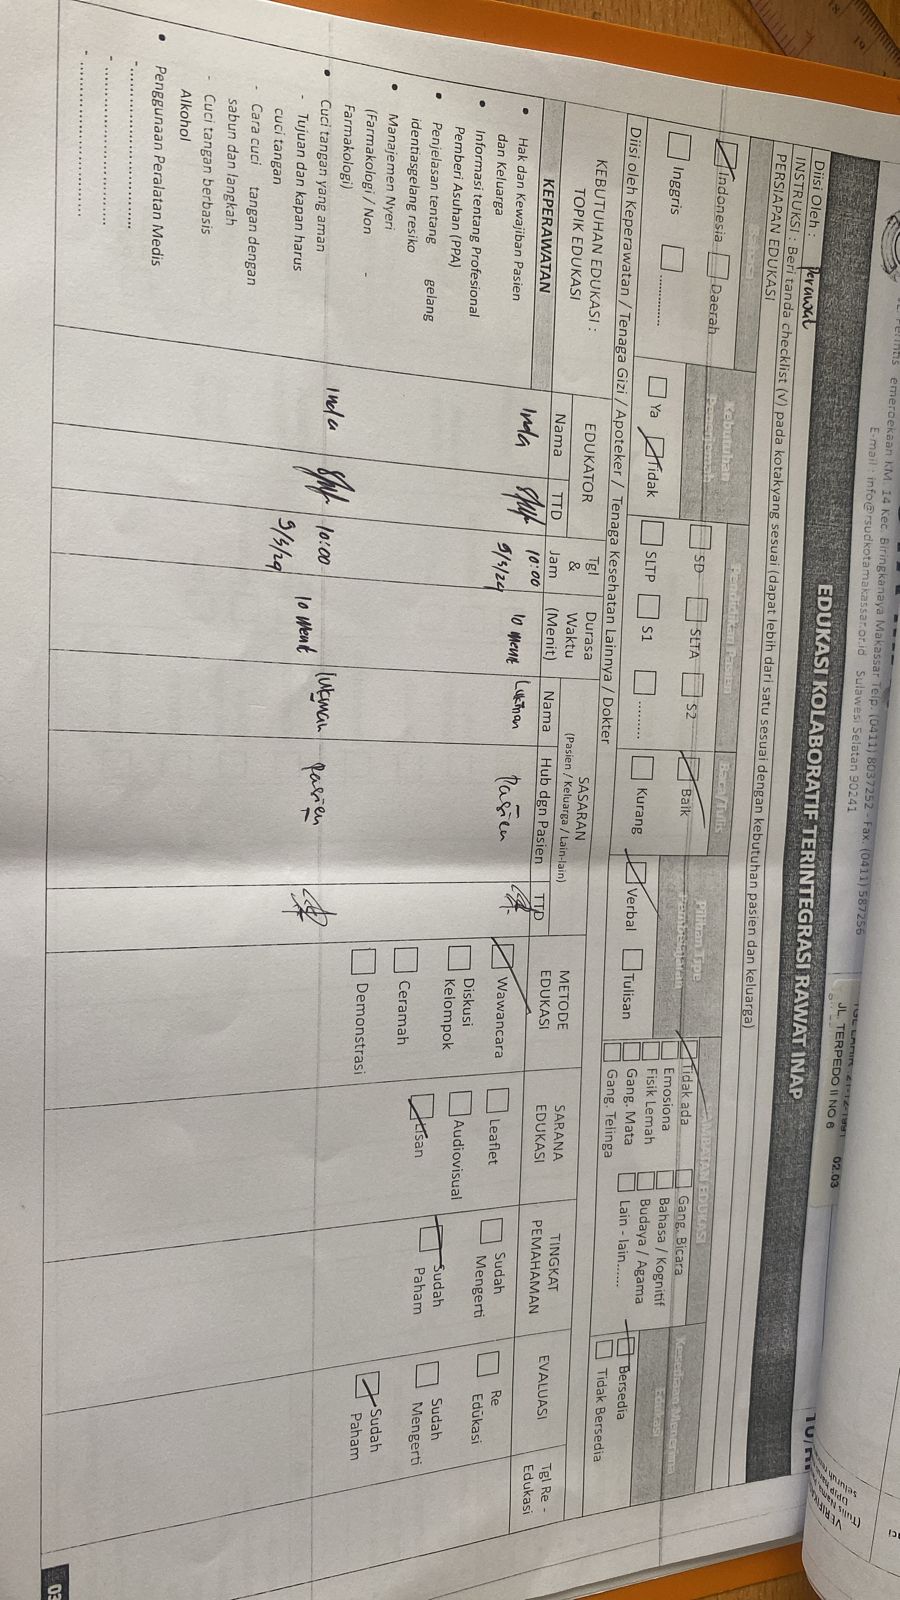 emerdekaan KM. 14 Kec. Biringkanaya Makassar Telp. (0411) 8037252 - Fax. (0411) 587256
E-mail : info@rsudkotamakassar.or.id Sulawesi Selatan 90241
JL. TERPEDO II NO 6 02.03
EDUKASI KOLABORATIF TERINTEGRASI RAWAT INAP
Diisi Oleh : Perawat
INSTRUKSI : Beri tanda checklist (V) pada kotakyang sesuai (dapat lebih dari satu sesuai dengan kebutuhan pasien dan keluarga)
PERSIAPAN EDUKASI
Pendidikan Pasien Baca/Tulis
Indonesia Daerah
Inggris .............
Ya Tidak
SD SLTA S2
SLTP S1 .........
Baik
Kurang
Verbal Tulisan
Tidak ada Gang. Bicara
Emosiona Bahasa / Kognitif
Fisik Lemah Budaya / Agama
Gang. Mata Lain - lain......
Gang. Telinga
Bersedia
Tidak Bersedia
Diisi oleh Keperawatan / Tenaga Gizi / Apoteker / Tenaga Kesehatan Lainnya / Dokter
KEBUTUHAN EDUKASI :
TOPIK EDUKASI
EDUKATOR
Nama TTD
Tgl
&
Jam
Durasa
Waktu
(Menit)
SASARAN
(Pasien / Keluarga / Lain-lain)
Nama Hub dgn Pasien TTD
METODE
EDUKASI
SARANA
EDUKASI
TINGKAT
PEMAHAMAN
EVALUASI
Tgl Re -
Edukasi
KEPERAWATAN
• Hak dan Kewajiban Pasien
dan Keluarga
• Informasi tentang Profesional
Pemberi Asuhan (PPA)
• Penjelasan tentang gelang
identiasgelang resiko
• Manajemen Nyeri
(Farmakologi / Non -
Farmakologi)
Inda 10:00 10 menit Lukman Pasien
9/3/24
Wawancara
Diskusi
Kelompok
Ceramah
Demonstrasi
Leaflet
Audiovisual
Lisan
Sudah
Mengerti
Sudah
Paham
Re
Edukasi
Sudah
Mengerti
Sudah
Paham
• Cuci tangan yang aman
- Tujuan dan kapan harus
cuci tangan
- Cara cuci tangan dengan
sabun dan langkah
- Cuci tangan berbasis
Alkohol
Inda 10:00 10 menit Lukman Pasien
9/3/24
• Penggunaan Peralatan Medis
- ................................
- ................................
- ................................
03